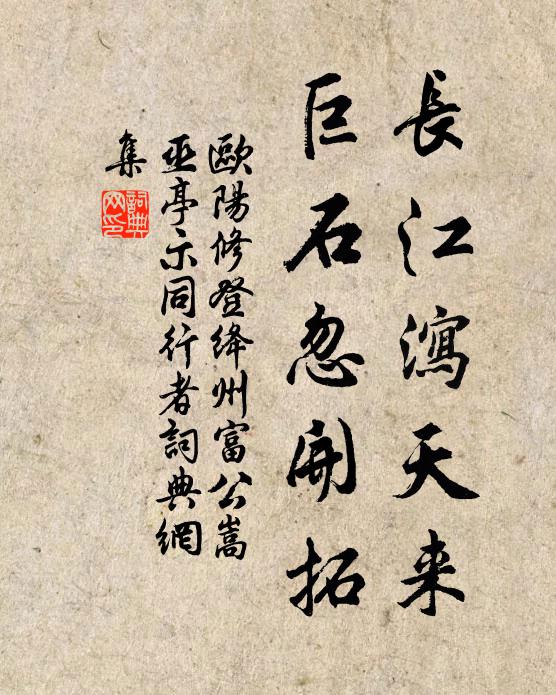 長江瀉天来
巨石忽開拓
歐陽修登絳州富公嵩
巫亭示同行者詞典網
集
詞典
网印